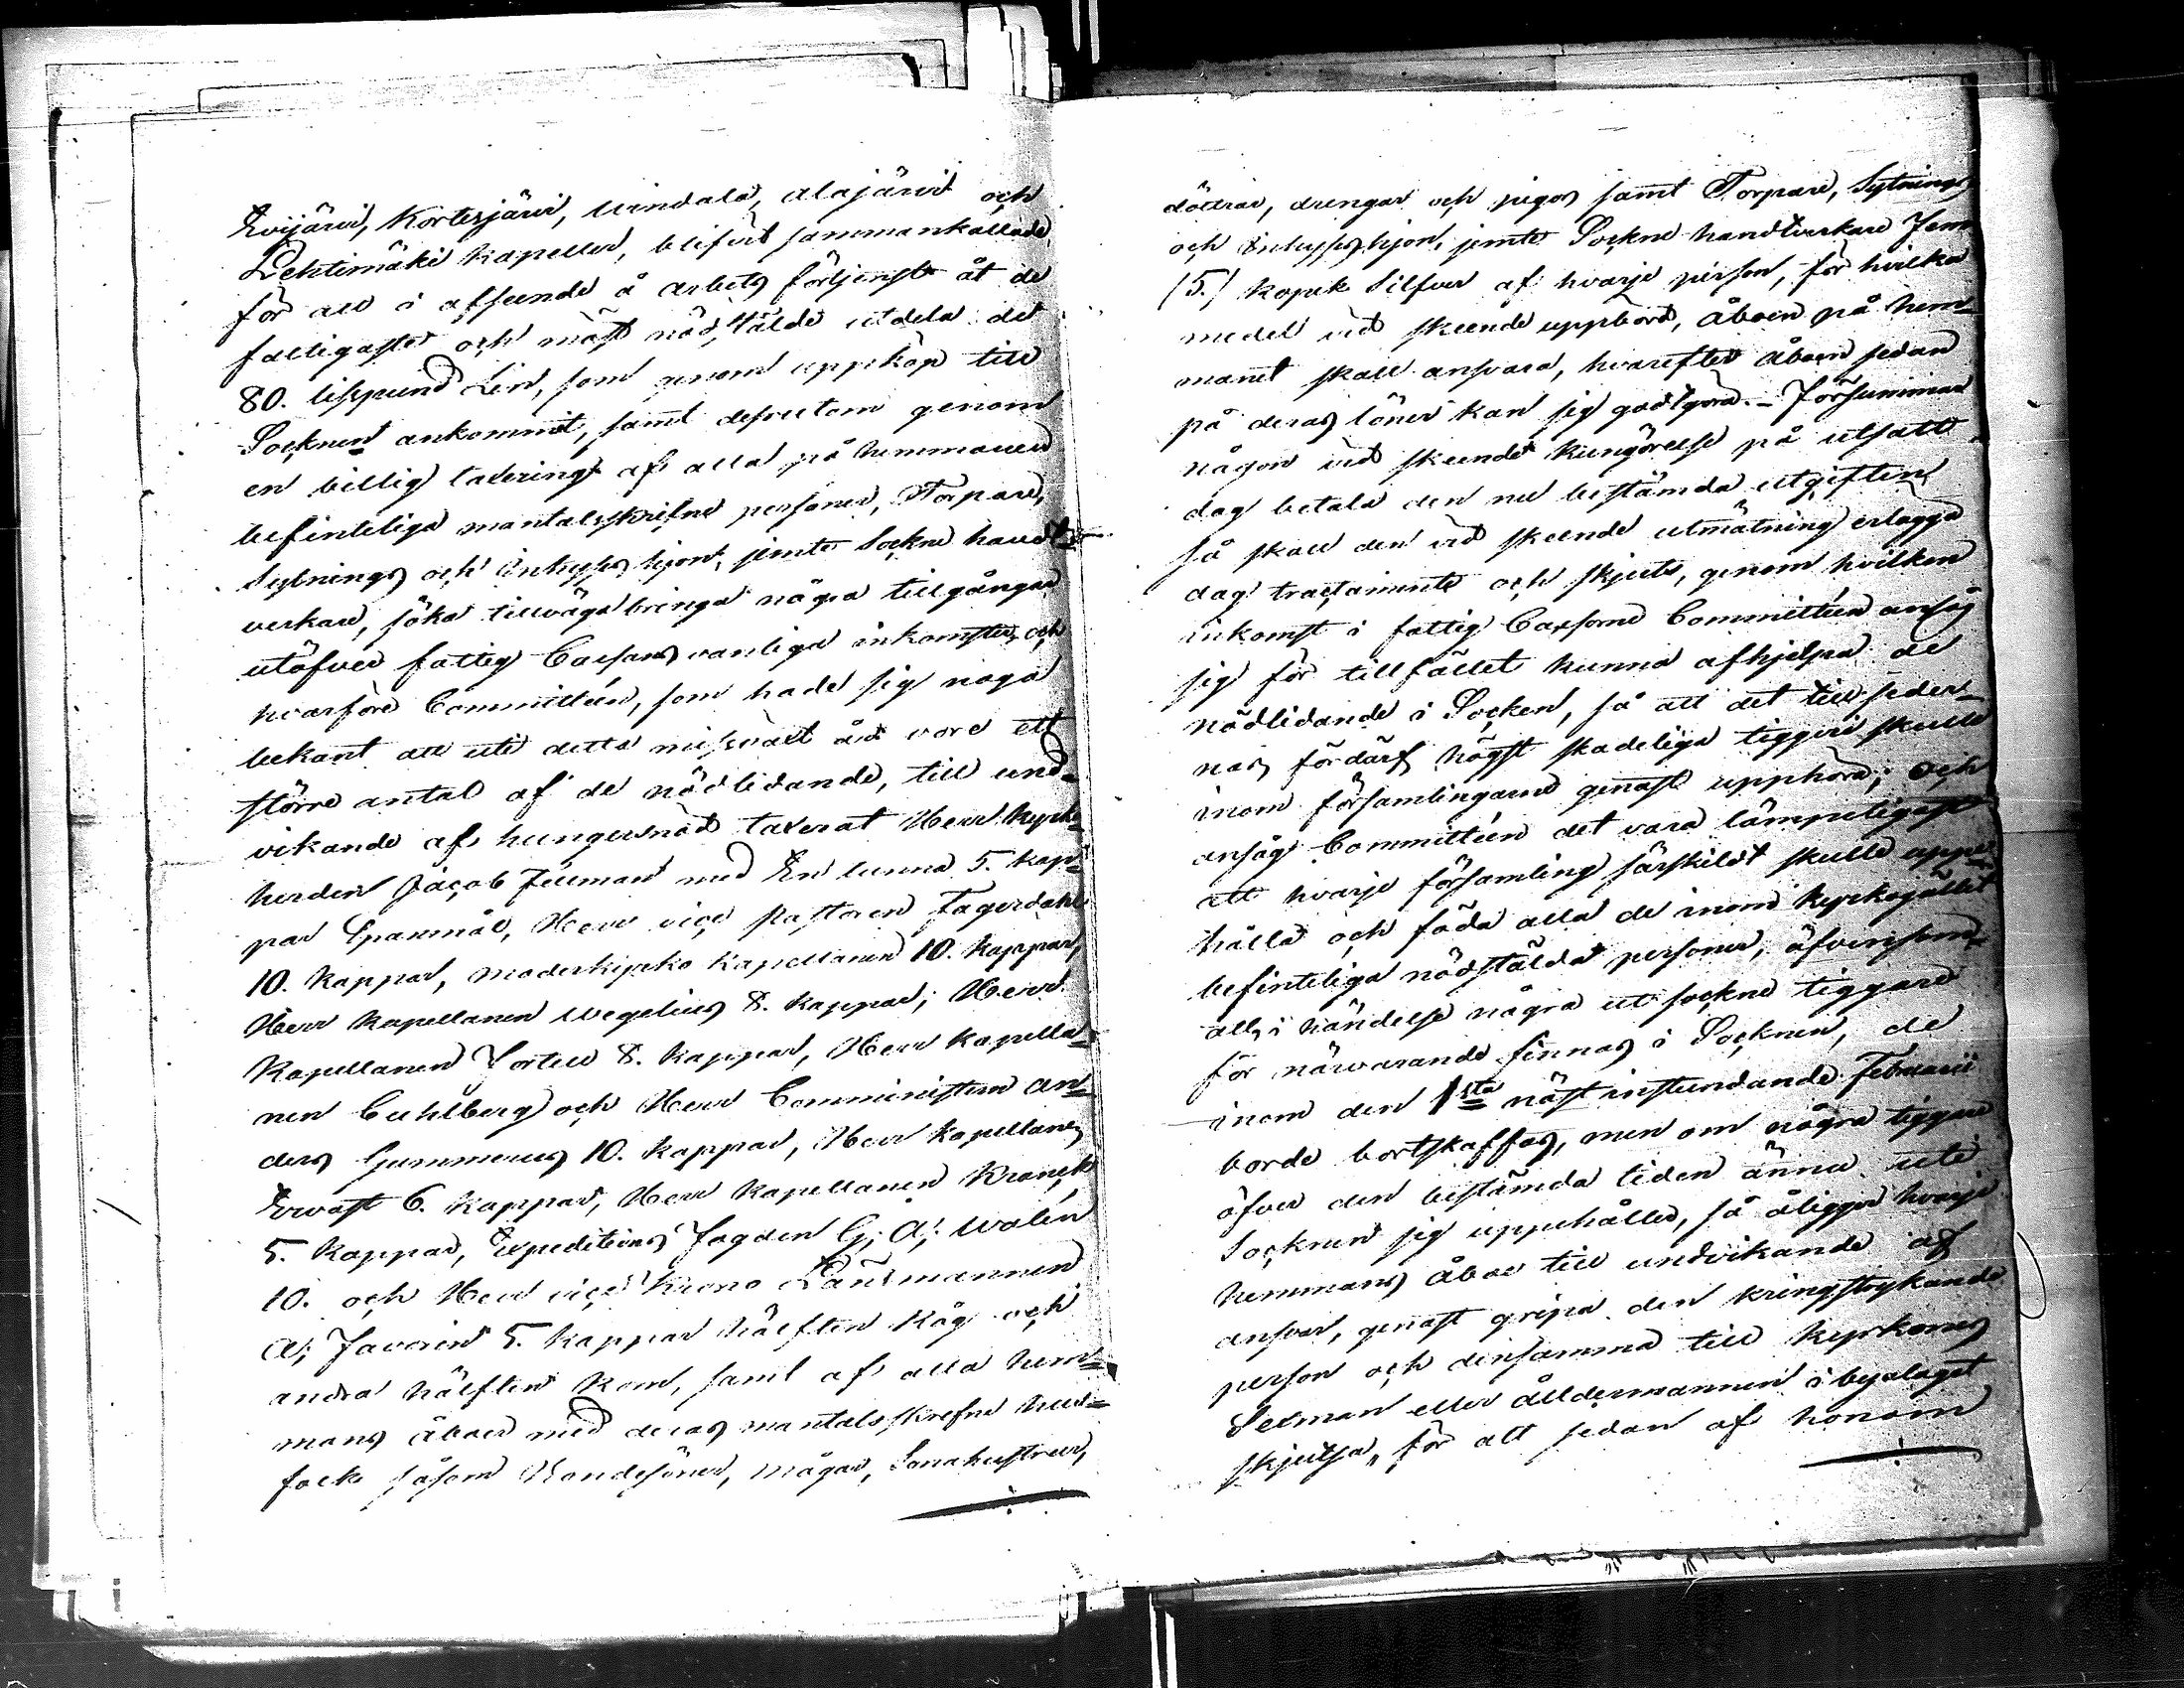 Evijärvi, Kortesjärvi, Windala, Alajärvi och
Lehtimäki Kapeller, blifvit sammankallade
för att i afseende å arbets förtjenst åt de
fattigaste och mäst nödstälde utdela det
80. lispund Lin, som genom uppköp till
Socknen ankommit, samt desutom genom
en billig taxering af alla på hemmanen
befinteliga mantalsskrifne personer, Torpare,
Sytnings och Inhyses hjon, jemte Sockne handt-
verkare, söka tillvägabringa några tillgångar
utöfver fattig Cassans vanliga inkomster, och
hvarföre Committéen, som hade sig noga
bekant att uti detta missväxt år vore ett
större antal af de nödlidande, till und-
vikande af hungersnöd taxerat Herr Kyrko-
herden Jacob Fellman med En tunna 5. kap-
par Spannmål, Herr vice pastoren Fagerdahl
10. kappar, moderkyrko Kapellanen 10. kappar,
Herr Kapellanen Wegelius 8. kappar; Herr
Kapellanen Fortell 8. kappar, Herr Kapella-
nen Cuhlberg och Herr Comministern An-
ders Gummerus 10. kappar, Herr Kapellanen
Ervast 6. kappar, Herr Kapellanen Kranck
5. kappar, Expeditions Fogden G; A; Walén
10. och Herr vice Krono Länsmannen
A; Favorin 5. kappar hälften Råg och
andra hälften Korn, samt af alla hem-
mans åboer med deras mantalsskrefne hus-
folk såsom Bondesöner, mågar, Sonahustrur,
döttrar, drengar och pigor samt Torpare, Sytnings
och Inhyses hjon, jemte Sockne handtverkare Fem
(5.) kopek Silfver af hvarje person, för hvilka
medel vid skeende uppbörd, åboen på hem-
manet skall ansvara, hvarefter åboen sedan
på deras löner kan sig godtgöra. - Försummar
någon vid skeende kungörelse på utsatt
dag betala den nu bestämda utgiften
så skall den vid skeende utmätning erlägga
dag tractamente och skjuts, genom hvilken
inkomst i fattig Cassorne Committéen ansåg
sig för tillfället kunna afhjelpa de
nödlidande i Socken, så att det till seder-
nas fördärf högst skadeliga tiggeri skulle
inom församlingarne genast upphöra; och
ansåg Committéen det vara lämpeligast
att hvarje församling särskildt skulle uppe-
hålla och föda alla de inom kyrkogället
befinteliga nödstälda personer, äfvensom
att, i händelse några ut sockne tiggare
för närvarande finnas i Socknen, de
inom den 1sta näst instundande Februarii
borde bortskaffas, men om några tiggare
öfver den bestämda tiden ännu uti
Socknen sig uppehåller, så åligger hvarje
hemmans åboe till undvikande af
ansvar, genast gripa den kringstrykande
person och densamma till kyrkones
Sexman eller ålldermannen i byalaget
skjutsa, för att sedan af honom